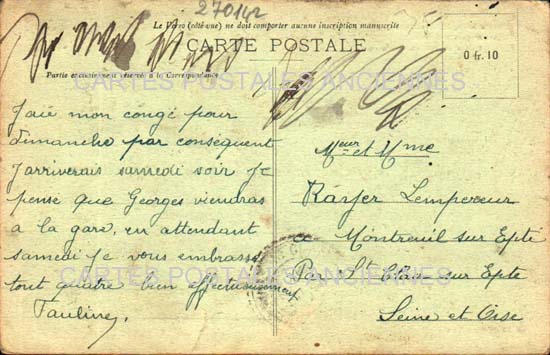 270142
Le Verso (côté vue) ne doit comporter aucune inscription manuscrite
CARTE POSTALE
0 fr. 10
Partie exclusivement réservée à la Correspondance
CARTES POSTALES ANCIENNES
J'aie mon congé pour
dimanche par conséquent
j'arriverais samedi soir Je
pense que Georges viendras
à la gare, en attendant
samedi Je vous embrasse
tout quatre bien affectueusement
Pauline
Meur et Mme
Lempereur
Montreuil sur Epte
Par St Clair sur Epte
Seine et Oise
CARTES POSTALES ANCIENNES